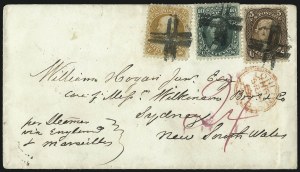 William Hogan Jun. Esq
care of Messrs Wilkinson Bros & Co
Sydney
New South Wales
per Steamer
via England
& Marseilles
24